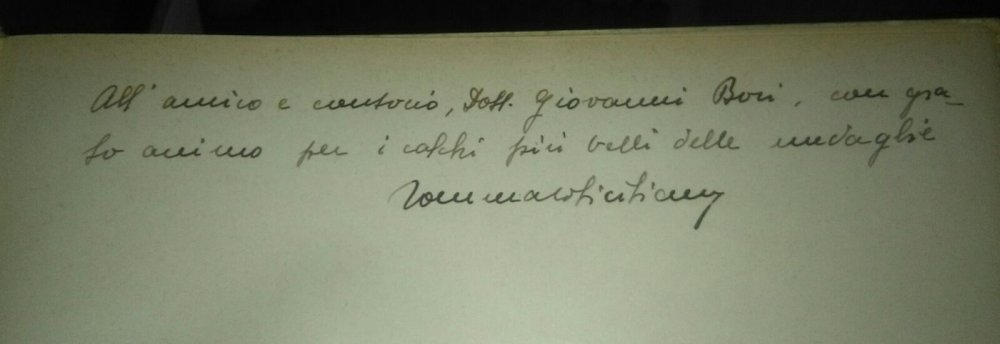 All'amico e consocio, Dott. Giovanni Bovi, con gra-
to animo per i calchi più belli delle medaglie
Tommaso Siciliano